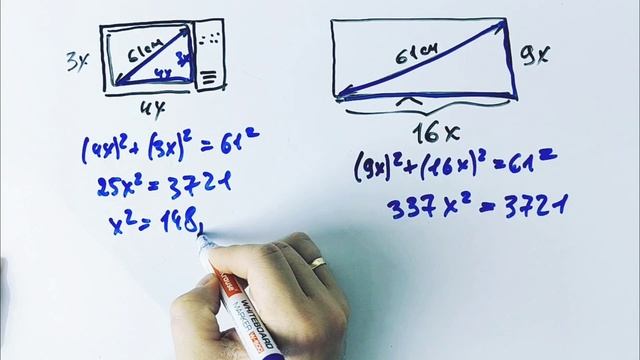 3x
61см
3x
4x
4x
(4x)² + (3x)² = 61²
25x² = 3721
x² = 148,
61см
9x
16x
(9x)² + (16x)² = 61²
337x² = 3721
WHITEBOARD
MARKER